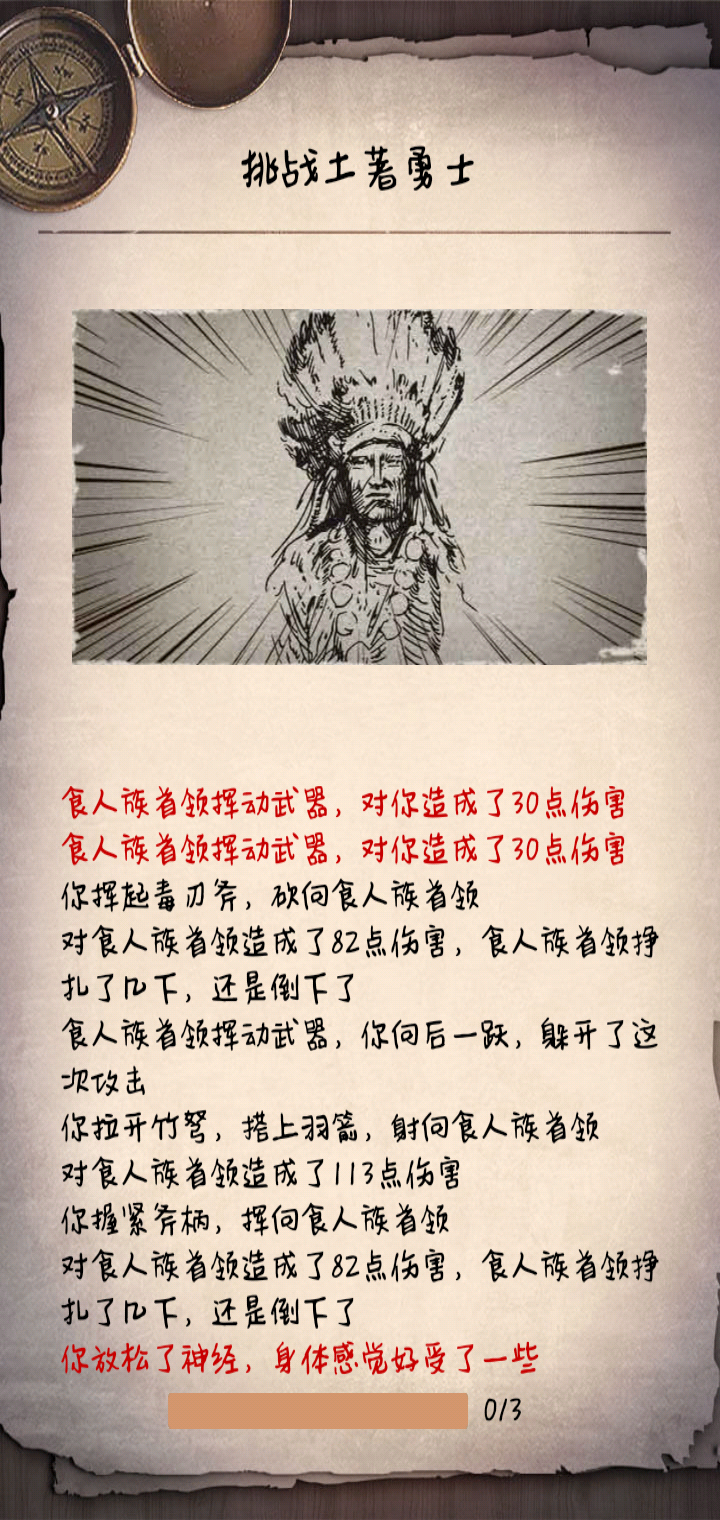 挑战土著勇士
食人族首领挥动武器，对你造成了30点伤害
食人族首领挥动武器，对你造成了30点伤害
你挥起毒刃斧，砍向食人族首领
对食人族首领造成了82点伤害，食人族首领挣
扎了几下，还是倒下了
食人族首领挥动武器，你向后一跃，躲开了这
次攻击
你拉开竹弩，搭上羽箭，射向食人族首领
对食人族首领造成了113点伤害
你握紧斧柄，挥向食人族首领
对食人族首领造成了82点伤害，食人族首领挣
扎了几下，还是倒下了
你放松了神经，身体感觉好受了一些
0/3